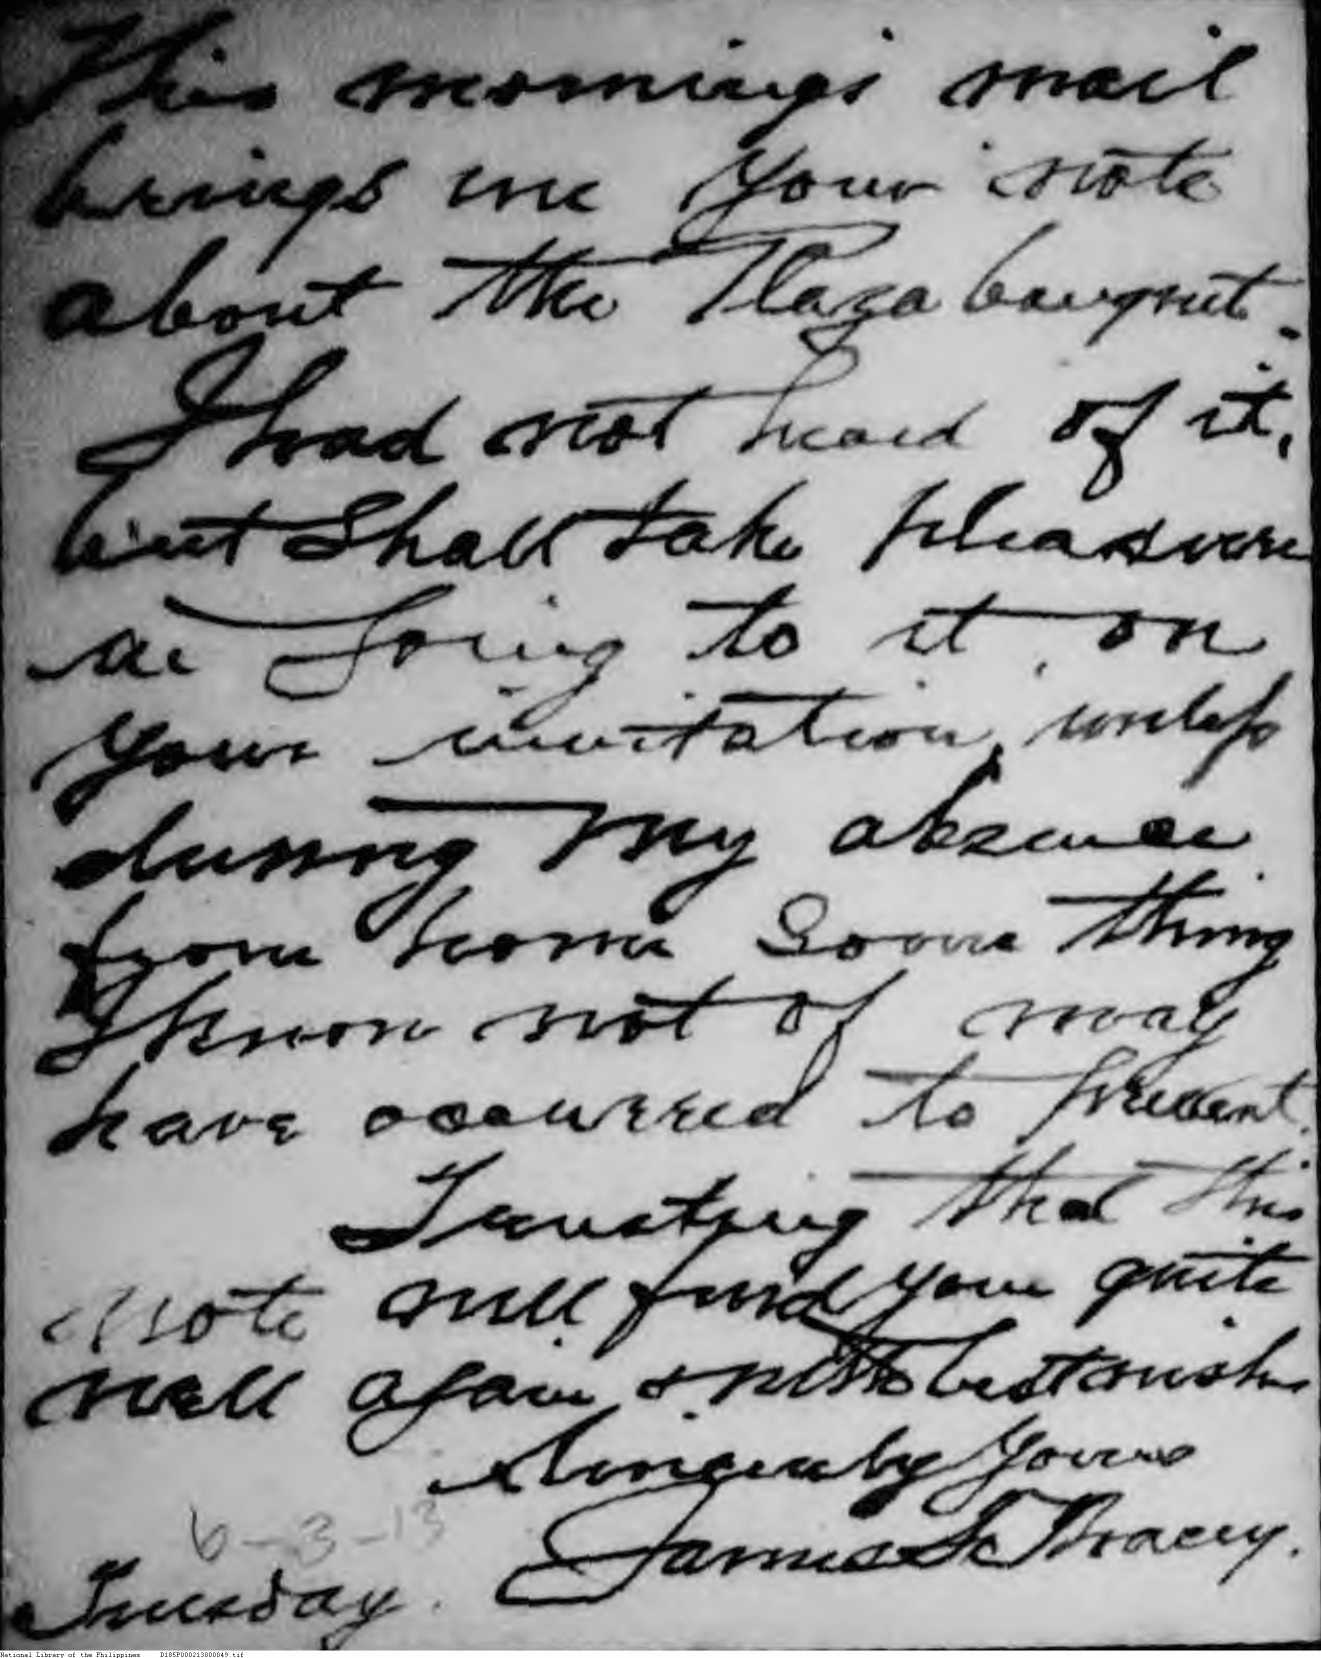 This morning's mail
brings me your note
about the Plaza banquet.
I had not heard of it,
but shall take pleasure
in going to it on
your invitation, unless
during my absence
from home some thing
I know not of may
have occurred to prevent.
Trusting that this
note will find you quite
well again & with best wishes
Sincerely Yours
James S. Tracey.
6-3-13
Tuesday.
National Library of the Philippines D185P000213800049.tif